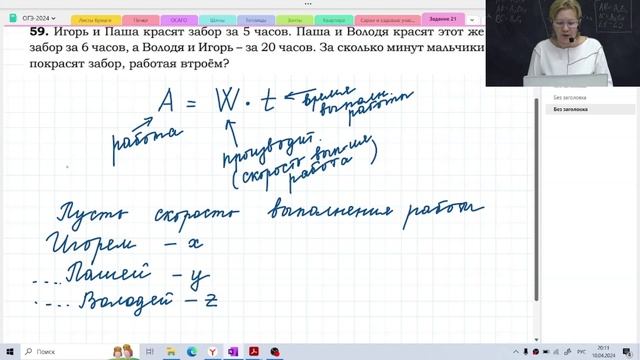 ОГЭ-2024
Листы бумаги
Печки
ОСАГО
Шины
Теплицы
Зонты
Квартира
Задание 21
59. Игорь и Паша красят забор за 5 часов. Паша и Володя красят этот же
забор за 6 часов, а Володя и Игорь – за 20 часов. За сколько минут мальчики
покрасят забор, работая втроём?
A = W · t
время
выполн.
работы
работа
производит.
(скорость вып-ия
работа)
Пусть скорость выполнения работы
Игорем – x
.... Пашей – y
.... Володей – z
Без заголовка
Без заголовка
Поиск
РУС
20:11
10.04.2024